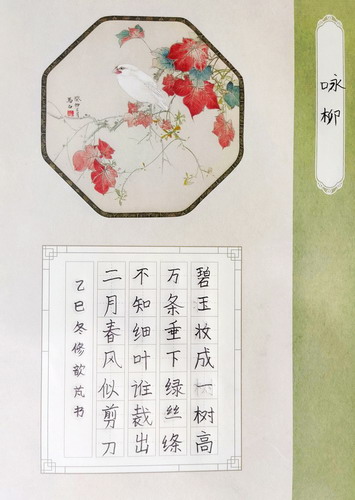 咏柳
碧玉妆成一树高
万条垂下绿丝绦
不知细叶谁裁出
二月春风似剪刀
乙巳冬修歆苑书